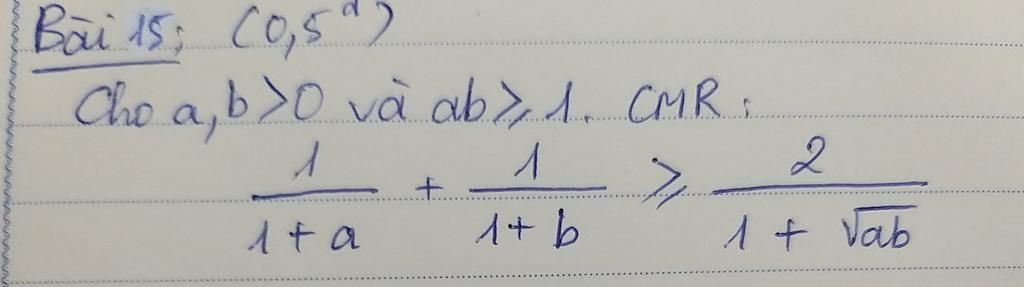 Bài 15: (0,5đ)
Cho a, b > 0 và ab ⩾ 1. CMR:
1/(1 + a) + 1/(1 + b) ⩾ 2/(1 + √ab)